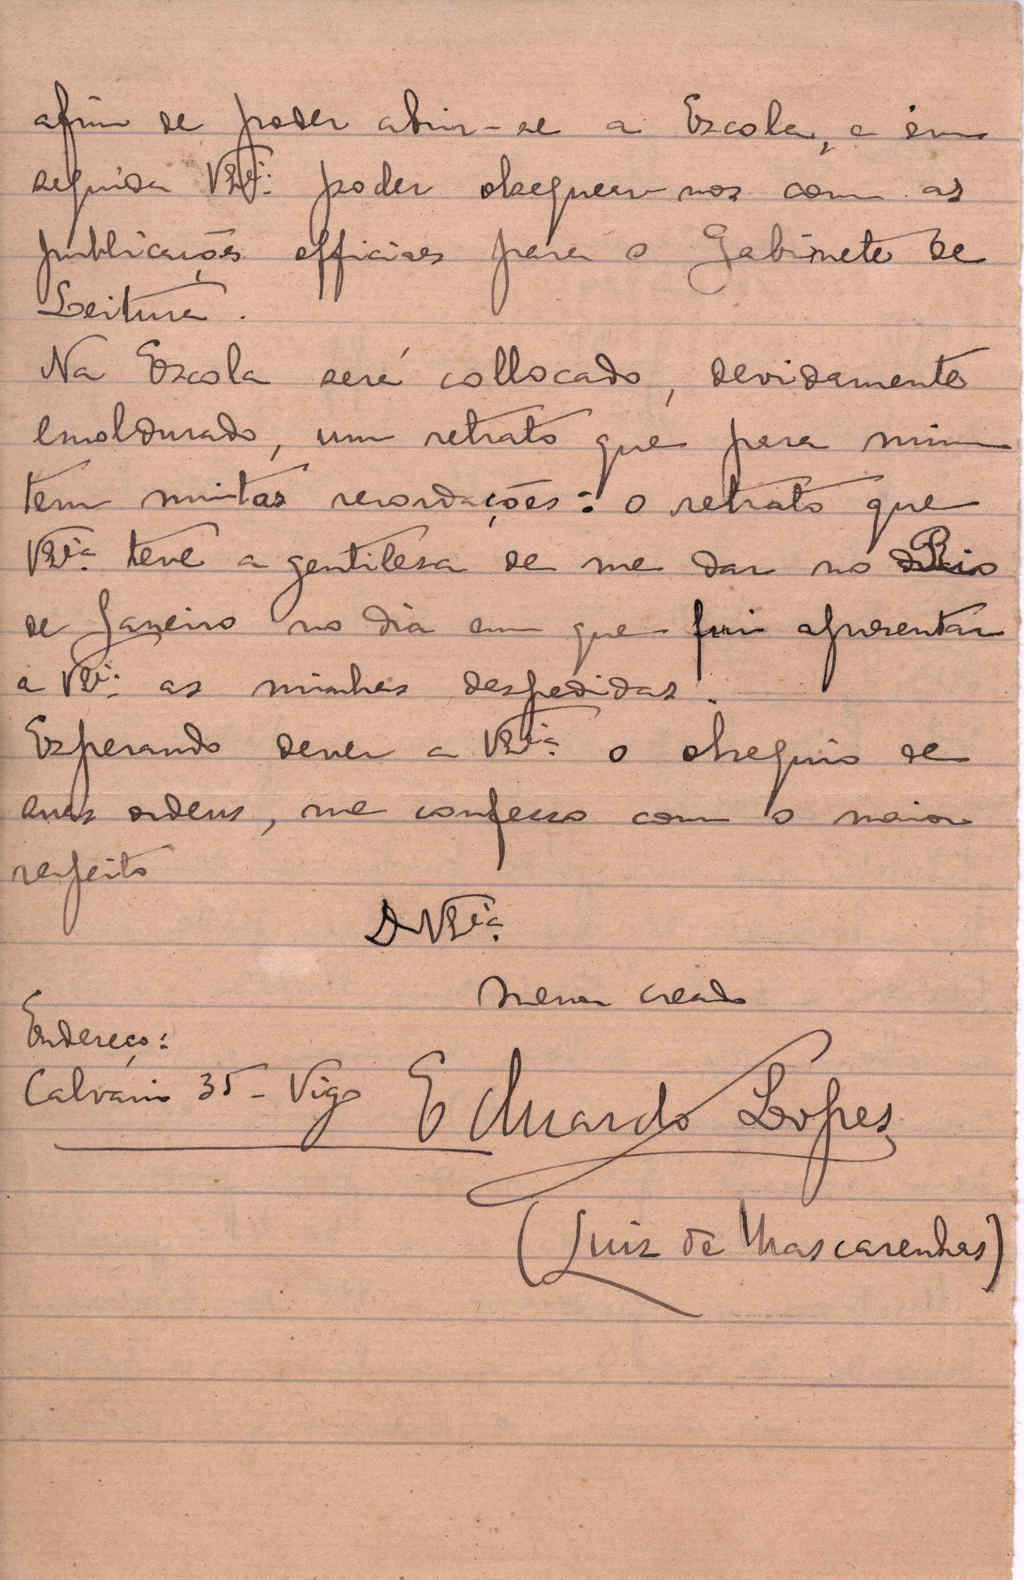 afim de poder abrir-se a Escola, e em
seguida V Exª. poder obsequear-nos com as
publicações officiaes para o Gabinete de
Leitura.
Na Escola será collocado, devidamente
emoldurado, um retrato que para mim
tem muitas recordações: o retrato que
V Exª. teve a gentilesa de me dar no Rio
de Janeiro no dia em que fui apresentar
a V Exª. as minhas despedidas.
Esperando dever a V Exª. o obsequio de
suas ordens, me confesso com o maior
respeito
D V Exª.
menor creado
Endereço:
Calvario 35 - Vigo
Eduardo Lopes
(Luiz de Mascarenhas)